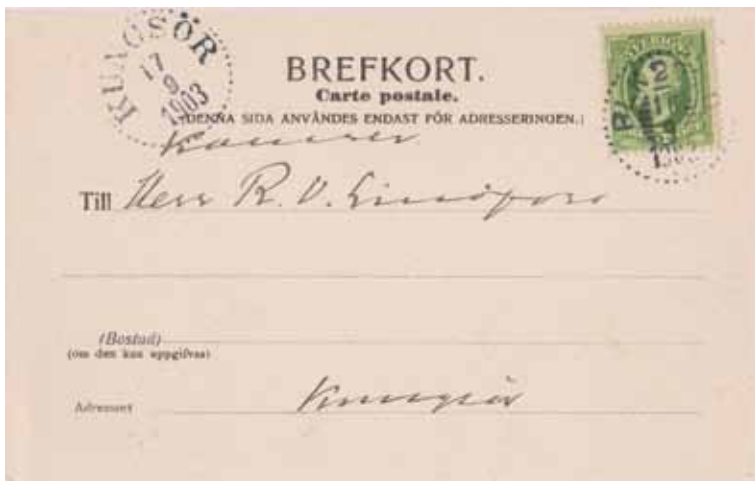 KUNGSÖR
17
9
1903
BREFKORT.
Carte postale.
(DENNA SIDA ANVÄNDES ENDAST FÖR ADRESSERINGEN.)
SVERIGE
2
Kamrer
Till Herr R. V. Lindfors
(Bostad)
(om den kan uppgifvas)
Adressort Kungsör